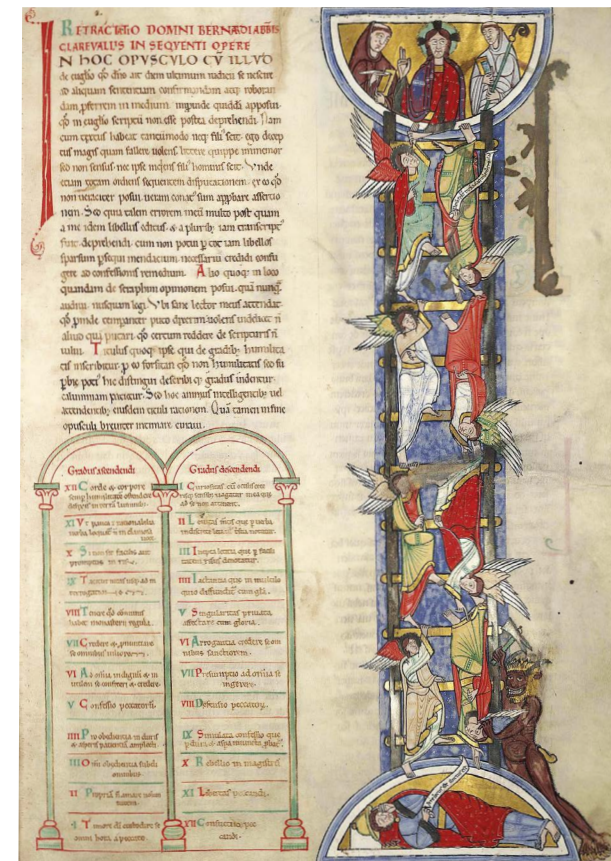 RETRACTATIO DOMNI BERNARDI ABBIS
CLAREVALLIS IN SEQVENTI OPERE
IN HOC OPUSCULO CV ILLVD
de euglio qd dns ait diem ultimum iudicii se nescire
ad aliquam sententiam confirmandam
in medium apposui
qd in euglio scriptū non esse postea deprehendi. Nam
cum textus habeat tantūmodo neq; filius scit. ego decep
tus magis quam fallere uolens. littere quippe immemor
sed non sensus. nec ipse inquens filius hominis scit. Vnde
etiam totam ordiens sequentem disputationem. ex eo qd
non ueraciter posui ueram conatus sum approbare assertio
nem. Sed quia talem errorem meū multo post quam
a me idem libellus editus. & a pluribus iam transcriptus
fuit deprehendi. cum non potui p tot iam libellos
sparsum psequi mendacium necessariū credidi confu
gere ad confessionis remedium. Alio quoq; in loco
quandam de seraphin opinionem posui. quā nunquā
audiui. nusquam legi. Vbi sane lector meus attendat
qd proinde temperanter puto dixerim. uolens uidelicet nō
aliud quā putari. qd certum reddere de scripturis nō
ualui. Titulus quoq; ipse qui de gradib; humilita
tis inscribitur
potius hic distingui describi q̄ gradus uidentur
calumniam patietur. Sed hoc aut minus intelligentib; uel
attendentib; eiusdem tituli rationem. Quā tamen in fine
opusculi breuiter intimare curaui.
Gradus ascendendi
XII Corde & corpore
semp humilitatē ostendere
defixis in terrā luminib;
XI Vt pauca & rationabilia
uerba loquat̄ n̄ in clamosa
uoce.
X Si non sit facilis aut
promptus in risu.
IX Taciturnitas usq; ad in
terrogationem
VIII Tenere qd communis
habet monasterii regula.
VII Credere & pnuntiare
se omnibus uiliorem.
VI Ad omnia indignū & in
utilem se confiteri & credere.
V Confessio peccatorū.
IIII Pro obedientia in duris
& asperis patientiā amplecti.
III Omni obedientia subdi
maioribus.
II Propriā non amare uolun
tatem.
I Timore dī custodire se
omni hora a peccato.
Gradus descendendi
I Curiositas
II Leuitas mentis que p uerba
III Inepta letitia que p facili
tatem risus denotatur.
IIII Iactantia que in multilo
quio diffundit̄
V Singularitas priuata
affectare cum gloria.
VI Arrogantia credere se om
nibus sanctiorem.
VII Presumptio ad omnia se
ingerere.
VIII Defensio peccatorū.
IX Simulata confessio que
X Rebellio in magistrū
XI Libertas peccandi.
XII Consuetudo pec
candi.